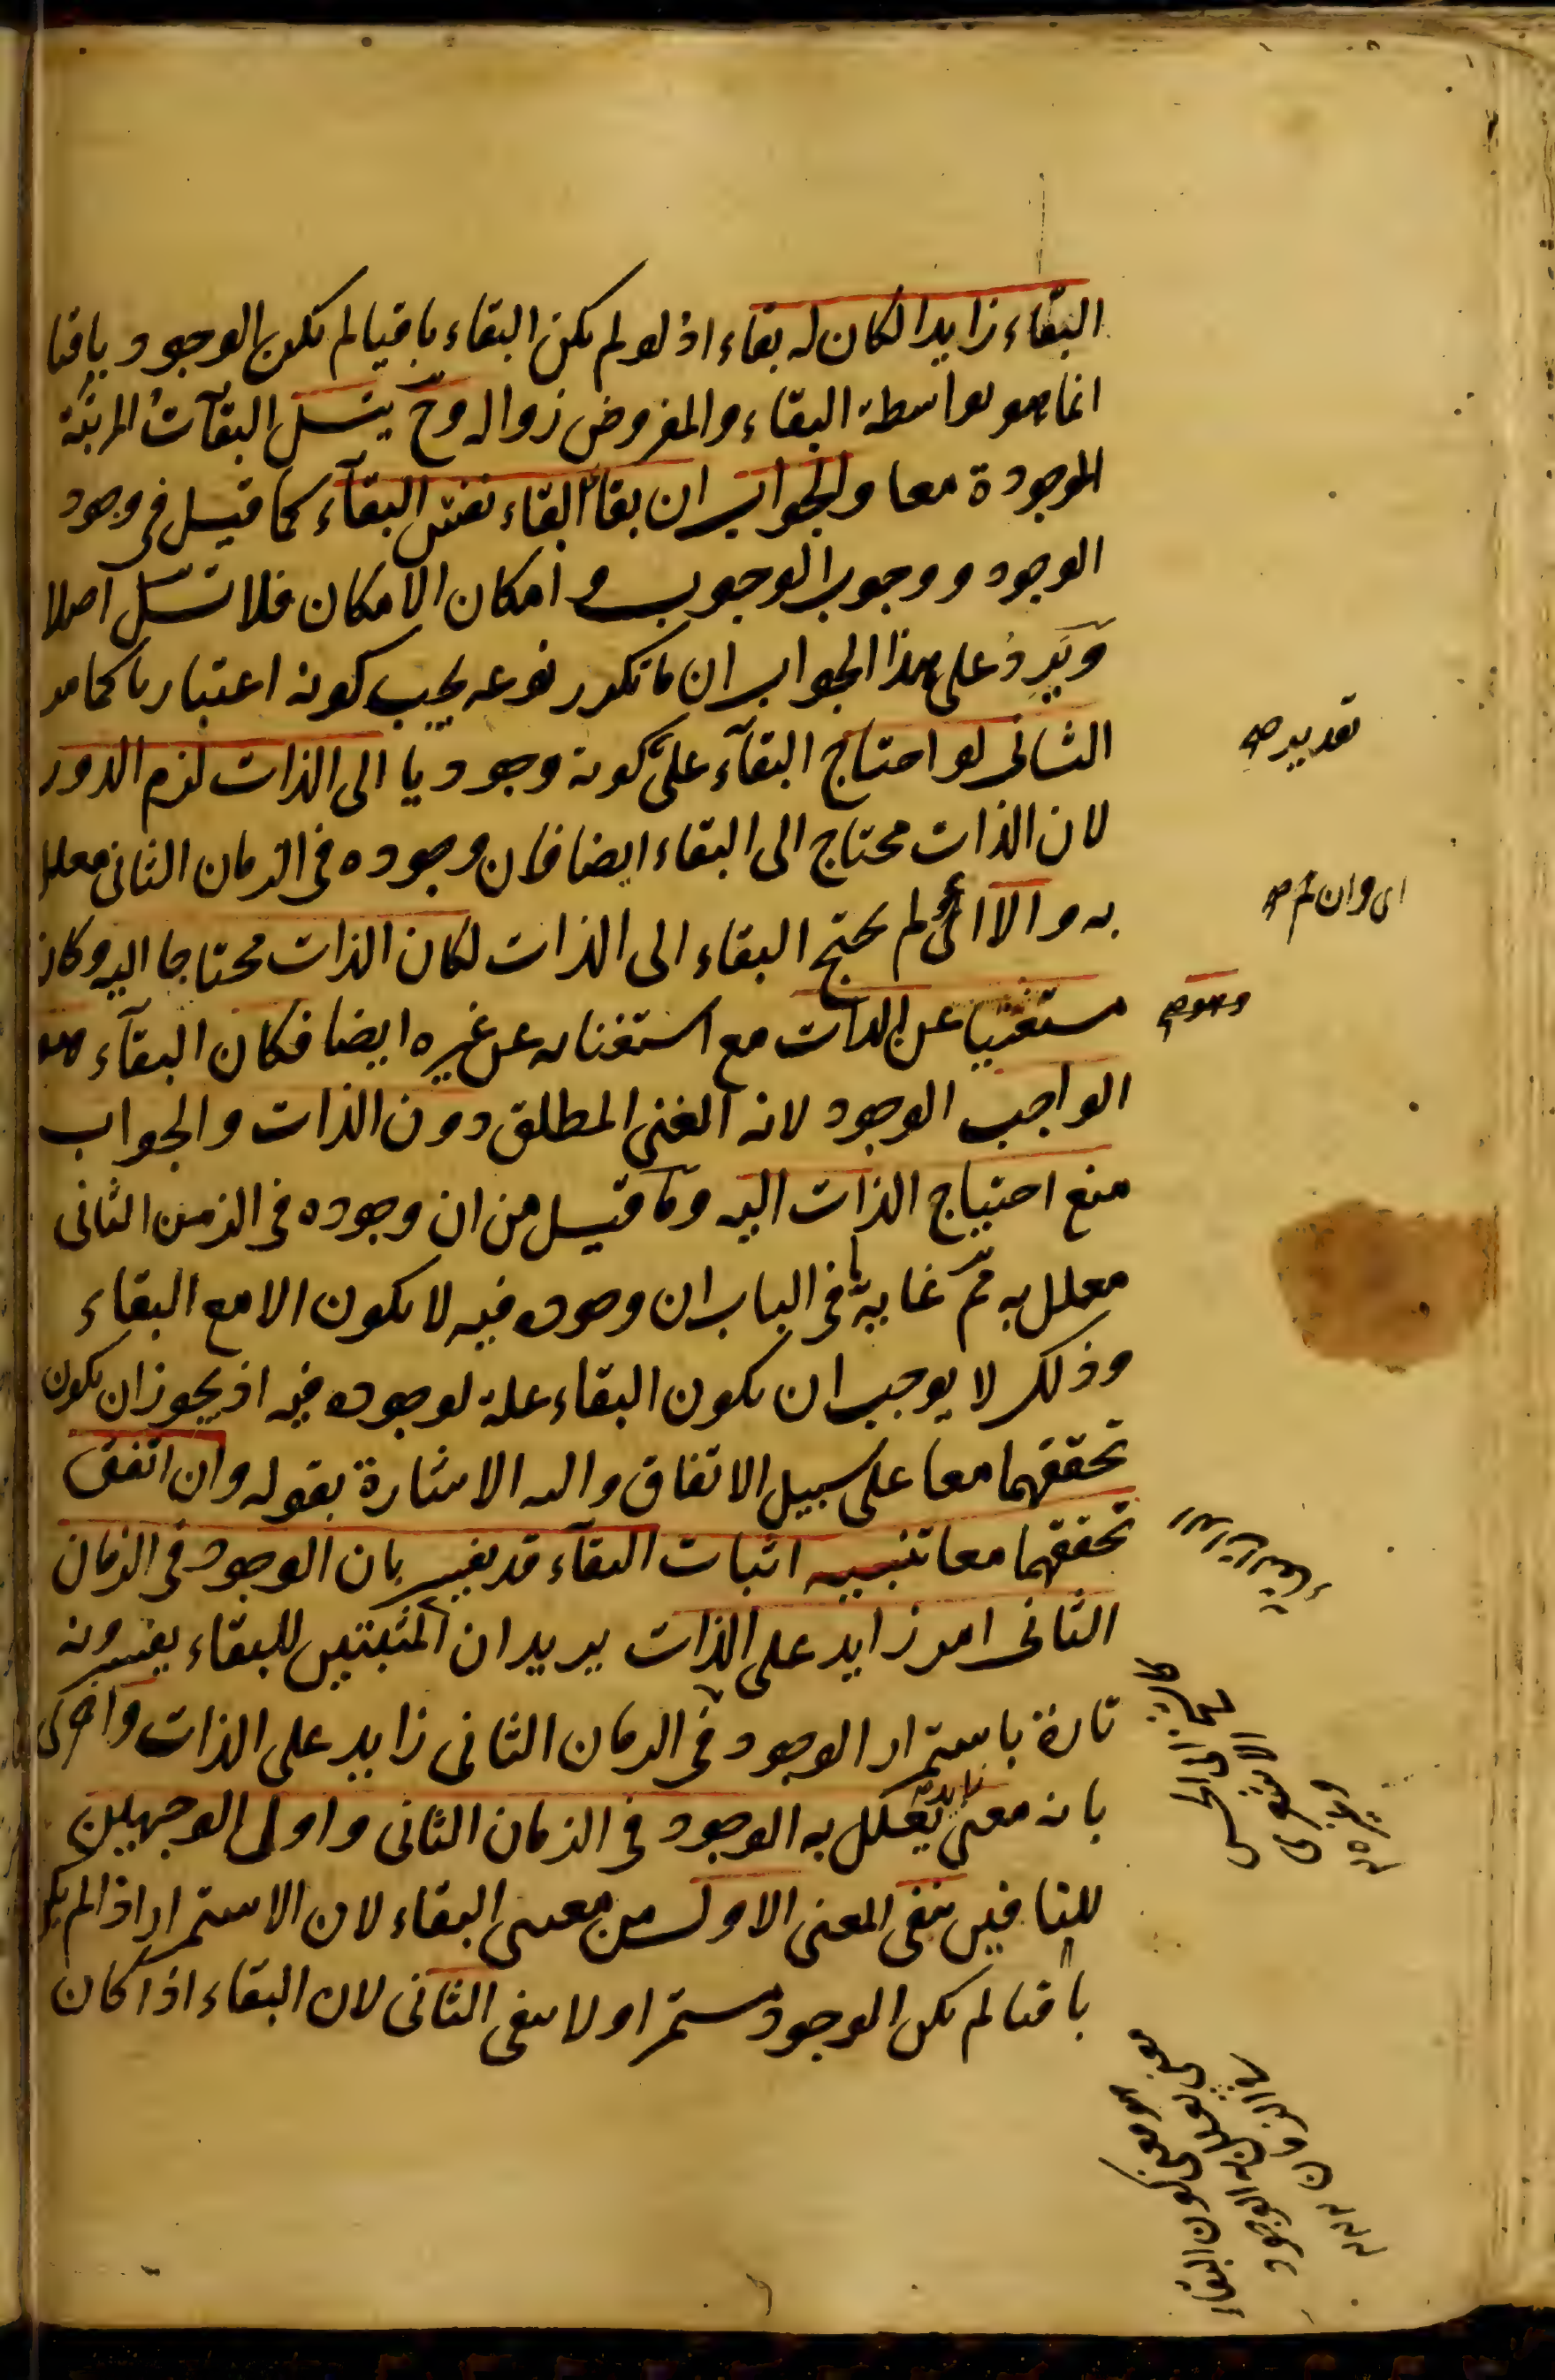 البقاء زايدا لكان له بقاء اذ لو لم يكن البقاء باقيا لم يكن الوجود باقيا
انما هو بواسطة البقاء والمفروض زواله وح يتسلسل البقآت المرتبة
الموجودة معا والجواب ان بقاء البقاء نفس البقآء كما قيل فى وجود
الوجود ووجوب الوجوب وامكان الامكان فلا تسلسل اصلا
ويرد على هذا الجواب ان ما تكرر نوعه يجب كونه اعتباريا كما مر
الثانى لو احتاج البقآء على كونه وجوديا الى الذات لزم الدور
لان الذات محتاج الى البقاء ايضا فان وجوده فى الزمان الثانى معلل
به والا اى لم يحتج البقاء الى الذات لكان الذات محتاجا اليه وكان
مستغنيا عن الذات مع استغنائه عن غيره ايضا فكان البقآء هو
الواجب الوجود لانه الغنى المطلق دون الذات والجواب
منع احتياج الذات اليه وما قيل من ان وجوده فى الزمن الثانى
معلل به مم غاية ما فى الباب ان وجوده فيه لا يكون الا مع البقاء
وذلك لا يوجب ان يكون البقاء علة لوجوده فيه اذ يجوز ان يكون
تحققهما معا على سبيل الاتفاق واليه الاشارة بقوله وان اتفق
تحققهما معا تنبيه اثبات البقآء قد يفسر بان الوجود فى الزمان
الثانى امر زايد على الذات يريد ان المثبتين للبقاء يفسرونه
تارة باستمرار الوجود فى الزمان الثانى زايد على الذات واخرى
بانه معنى زايد يعلل به الوجود فى الزمان الثانى واولى الوجهين
للنافين ينفى المعنى الاول من معنى البقاء لان الاستمرار اذا لم يكن
باقيا لم يكن الوجود مستمرا ولا ينفى الثانى لان البقاء اذا كان
تقدير صه
اى وان لم صه
وهو صه
الاشعرى